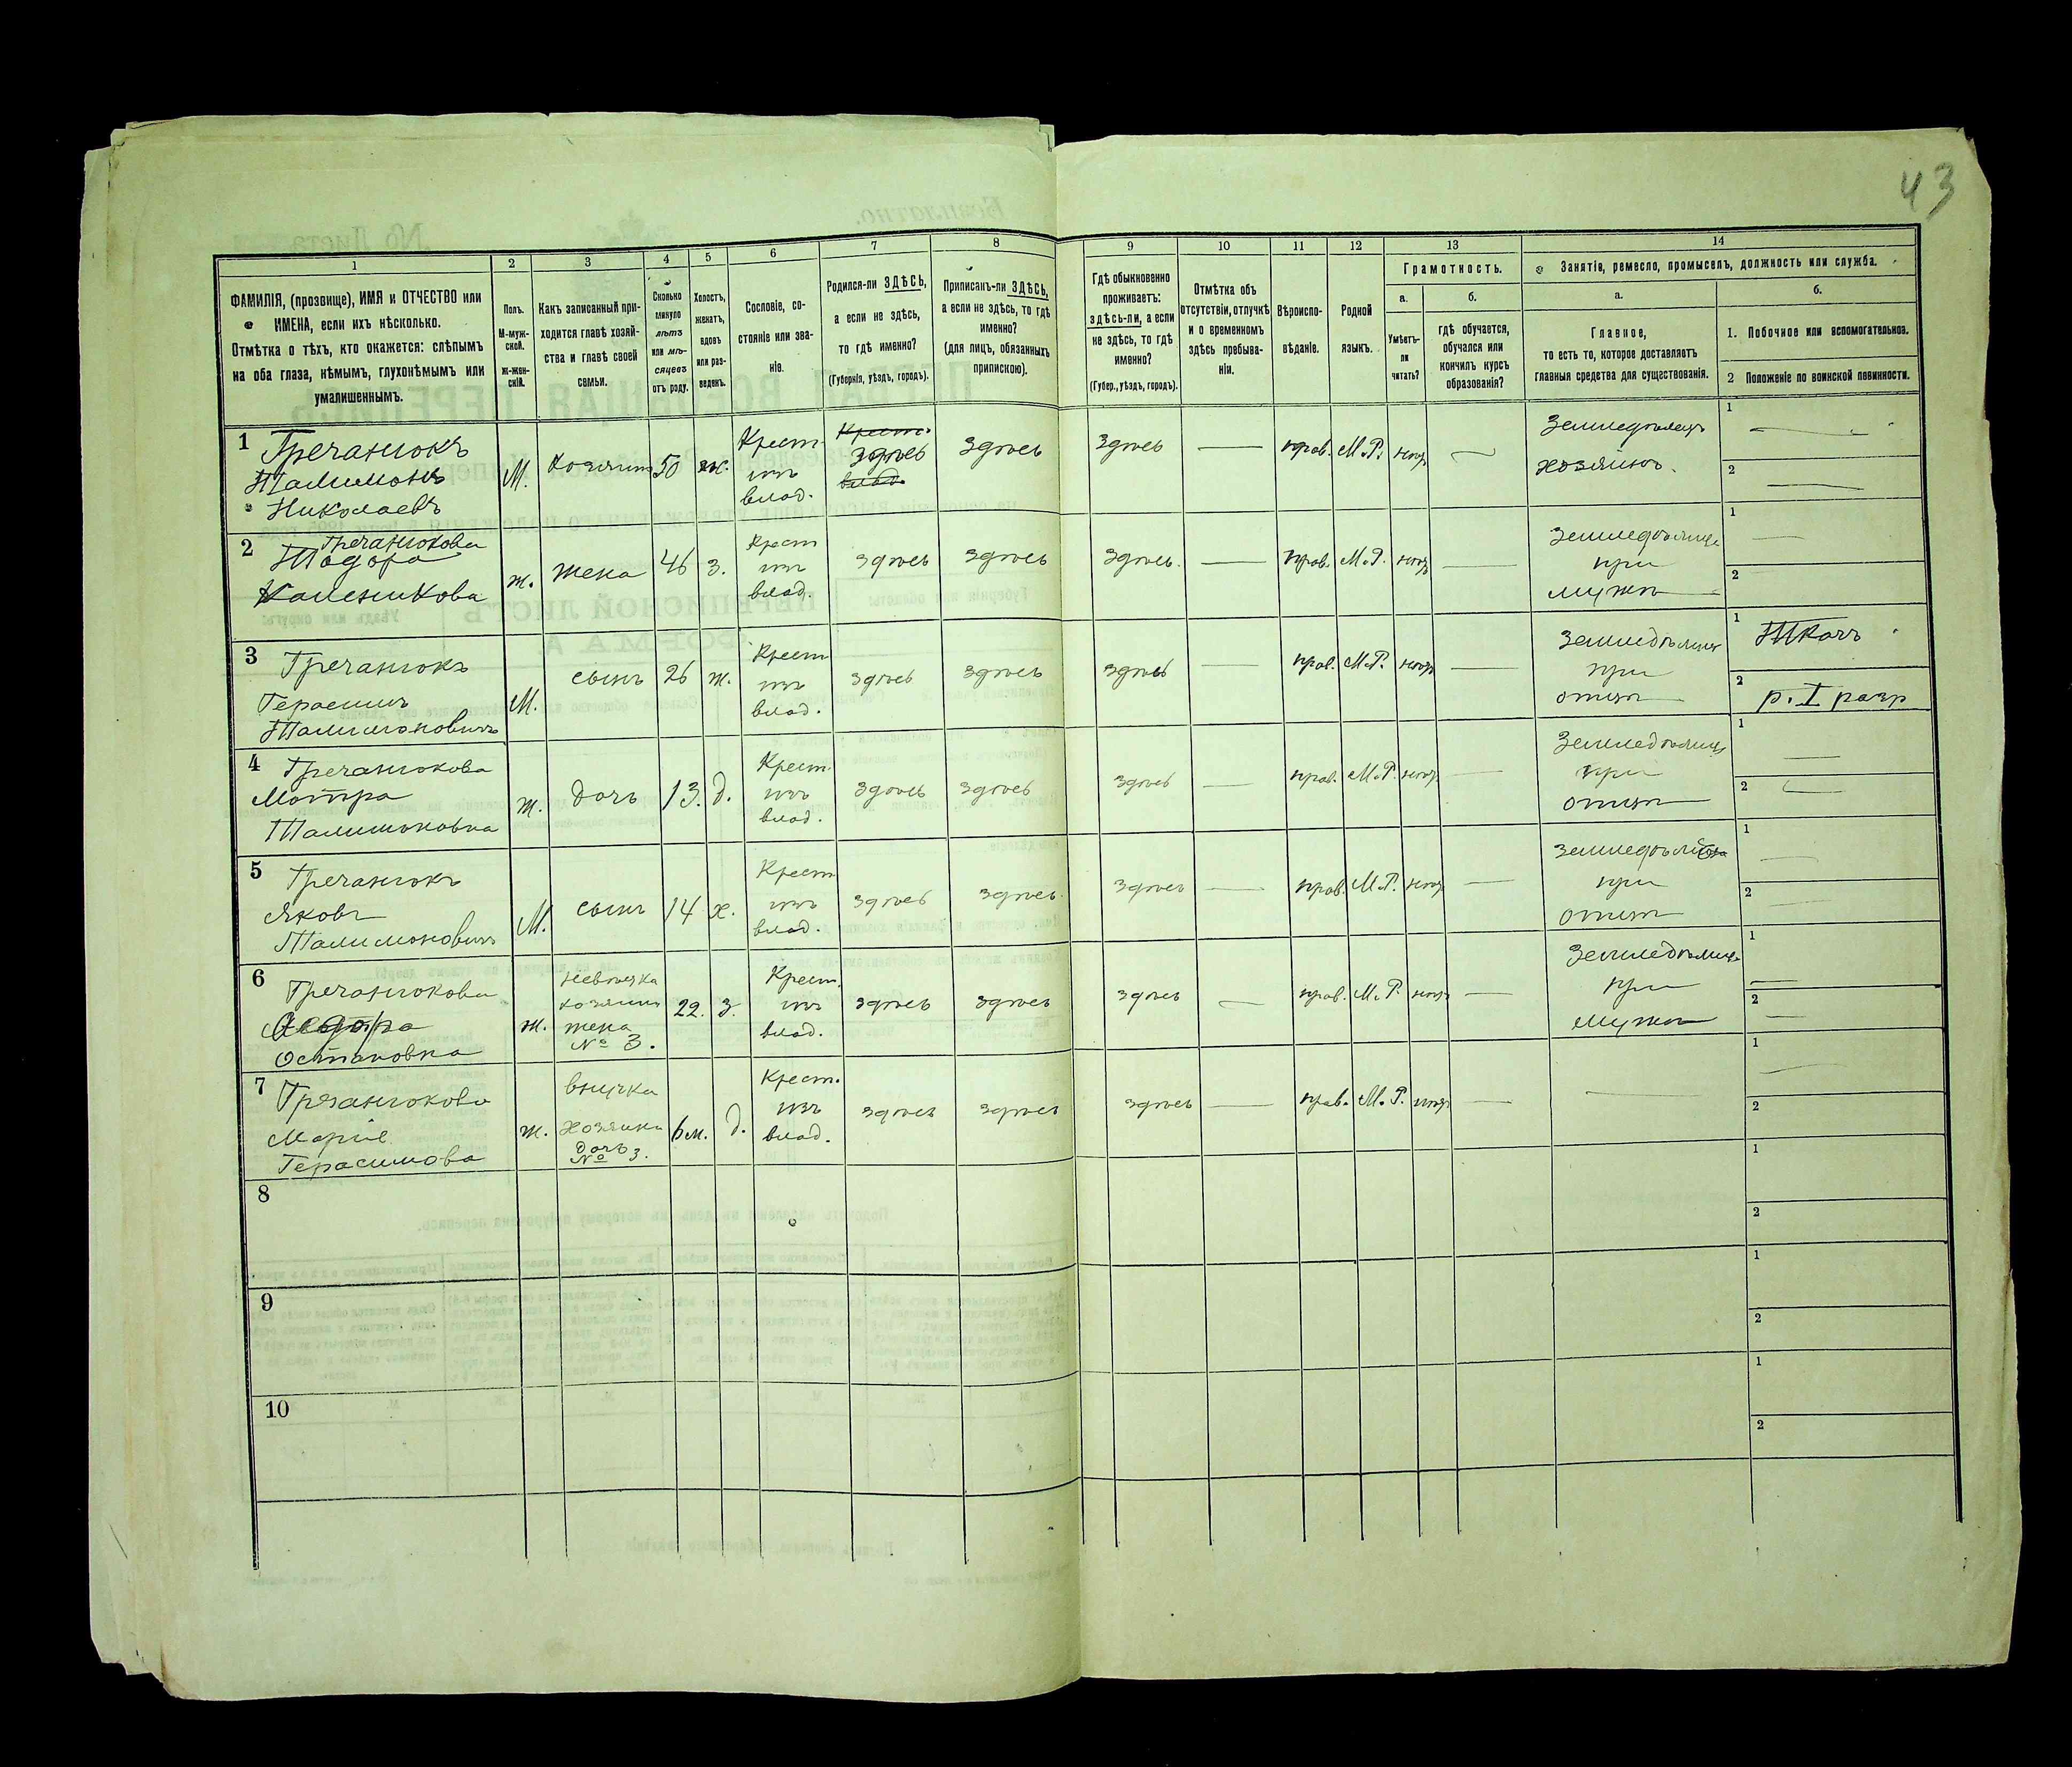 43
1
2
3
4
5
6
7
8
9
10
11
12
13
14
ФАМИЛІЯ, (прозвище), ИМЯ и ОТЧЕСТВО или
ИМЕНА, если ихъ нѣсколько.
Отмѣтка о тѣхъ, кто окажется: слѣпымъ
на оба глаза, нѣмымъ, глухонѣмымъ или
умалишеннымъ.
Полъ.
М-муж-
ской.
ж-жен-
скій.
Какъ записанный при-
ходится главѣ хозяй-
ства и главѣ своей
семьи.
Сколько
минуло
лѣтъ
или мѣ-
сяцевъ
отъ роду.
Холостъ,
женатъ,
вдовъ
или раз-
веденъ.
Сословіе, со-
стояніе или зва-
ніе.
Родился-ли ЗДѢСЬ,
а если не здѣсь,
то гдѣ именно?
(Губернія, уѣздъ, городъ).
Приписанъ-ли ЗДѢСЬ,
а если не здѣсь, то гдѣ
именно?
(для лицъ, обязанныхъ
припискою).
Гдѣ обыкновенно
проживаетъ:
здѣсь-ли, а если
не здѣсь, то гдѣ
именно?
(Губер., уѣздъ, городъ).
Отмѣтка объ
отсутствіи, отлучкѣ
и о временномъ
здѣсь пребыва-
ніи.
Вѣроиспо-
вѣданіе.
Родной
языкъ.
Грамотность.
а.
Умѣетъ-
ли
читать?
б.
гдѣ обучается,
обучался или
кончилъ курсъ
образованія?
Занятіе, ремесло, промыселъ, должность или служба.
а.
Главное,
то есть то, которое доставляетъ
главныя средства для существованія.
б.
1. Побочное или вспомогательное.
2 Положеніе по воинской повинности.
1 Гречанюкъ
Николаевъ
М.
хозяинъ
50
ж.
Крест.
изъ
влад.
Крест.
здѣсь
влад.
здѣсь
здѣсь
—
прав.
М.Р.
—
Земледѣлецъ
хозяинъ.
1 —
2 —
2 Гречанюкова
Ж.
жена
46
з.
Крест
изъ
влад.
здѣсь
здѣсь
здѣсь.
—
прав.
М.Р.
—
при
мужѣ
1 —
2
3 Гречанюкъ
Герасимъ
М.
сынъ
26
ж.
Крест
изъ
влад.
здѣсь
здѣсь
здѣсь
—
прав.
М.Р.
—
при
отцѣ
1 Ткачъ
2 р. I разр
4 Гречанюкова
Мотра
ж.
дочь
13.
д.
Крест.
изъ
влад.
здѣсь
здѣсь
здѣсь
—
прав.
М.Р.
—
при
отцѣ
1 —
2 —
5 Гречанюкъ
Яковъ
М.
сынъ
14
х.
Крест
изъ
влад.
здѣсь
здѣсь.
здѣсь
—
прав.
М.Р.
—
при
отцѣ
1 —
2 —
6 Гречанюкова
ж.
невѣстка
хозяина
жена
№ 3.
22.
з.
Крест.
изъ
влад.
здѣсь
здѣсь
здѣсь
—
прав.
М.Р.
—
при
мужѣ
1 —
2 —
7 Гречанюкова
Марія
Герасимова
ж.
внучка
дочь
№ 3.
6 м.
д.
Крест.
изъ
влад.
здѣсь
здѣсь
здѣсь
—
прав.
М.Р.
—
—
1 —
2
8
1
2
9
1
2
10
1
2